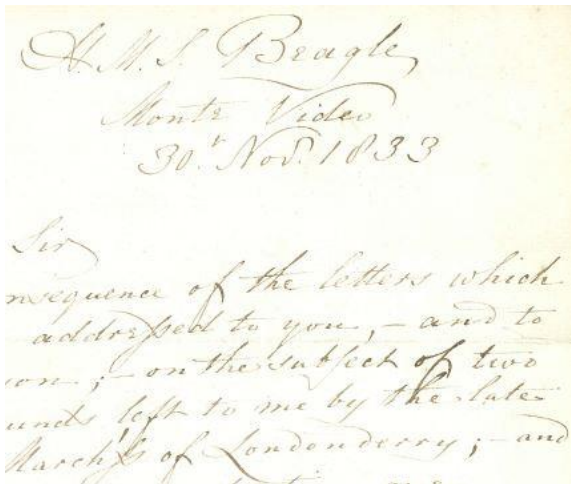 H. M. S. Beagle
Monte Video
30.th Novr. 1833
Sir
nsequence of the letters which
addressed to you, – and to
on; – on the subject of two
unds left to me by the late
March.ss of Londonderry; – and